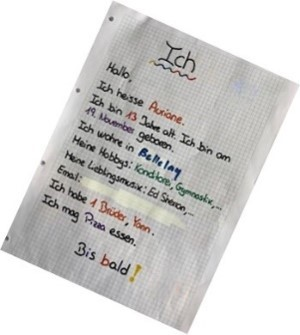 Ich
Hallo,
Ich heisse Auriane.
Ich bin 13 Jahre alt. Ich bin am
19. November geboren.
Ich wohne in Bellelay
Meine Hobbys: Konditorei, Gymnastik,...
Meine Lieblingsmusik: Ed Sheran,...
Email:
Ich habe 1 Brüder, Yann.
Ich mag Pizza essen.
Bis bald!